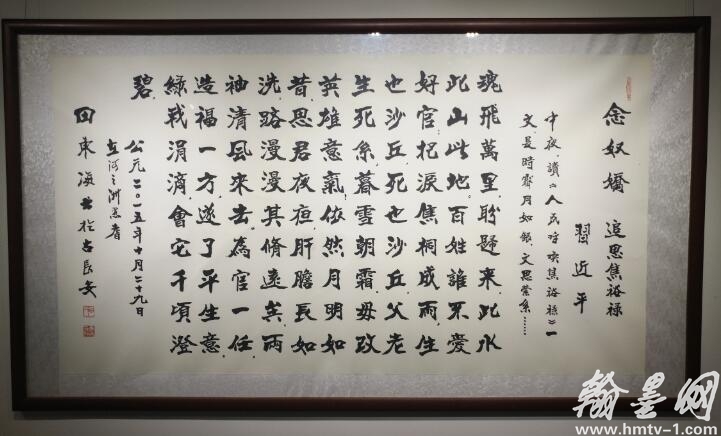 念奴嬌 追思焦裕禄
習近平
中夜，讀《人民呼喚焦裕禄》一
文，是時霽月如銀，文思縈系……
魂飛萬里，盼歸來，此水
此山此地。百姓誰不愛
好官？把淚焦桐成雨。生
也沙丘，死也沙丘，父老
生死系。暮雪朝霜，毋改
英雄意氣！依然月明如
昔，思君夜夜，肝膽長如
洗。路漫漫其脩遠矣，兩
袖清風來去。為官一任，
造福一方，遂了平生意。
綠我涓滴，會它千頃澄
碧。
公元二〇一五年十月二十九日
在河之洲愚者
田東海書於古長安
翰墨网
www.hmtv-1.com